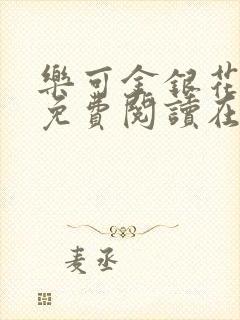 樂可金銀花
免費閱讀在
麦丞